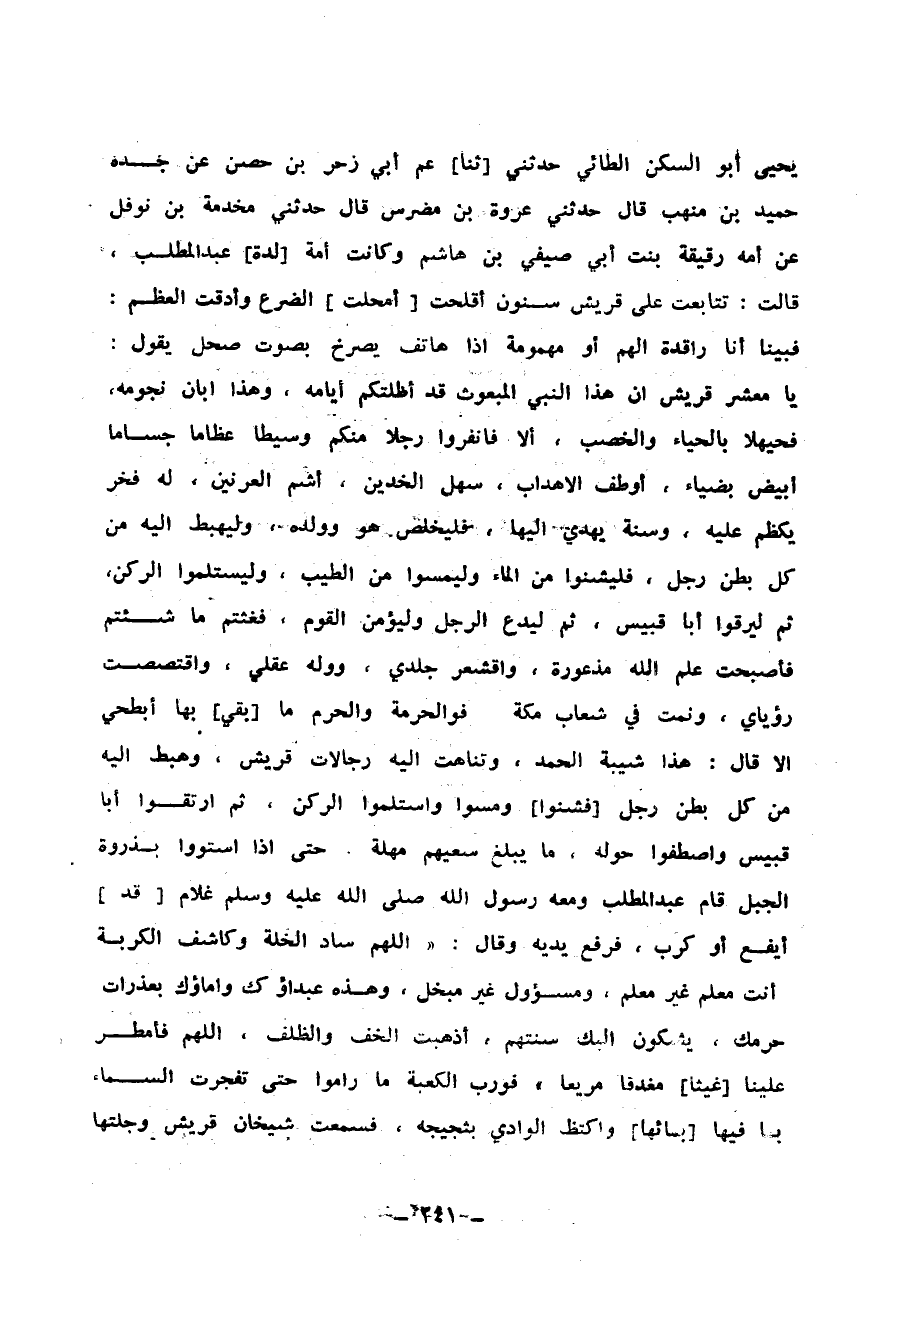 يحيى أبو السكن الطائي حدثني [ثنا] عم أبي زحر بن حصن عن جـــده
حميد بن منهب قال حدثني عروة بن مضرس قال حدثني مخدمة بن نوفل
عن أمه رقيقة بنت أبي صيفي بن هاشم وكانت أمة [لدة] عبدالمطلـــب ،
قالت : تتابعت على قريش ســنون أقلحت [ أمحلت ] الضرع وأدقت العظــم :
فبينا أنا راقدة الهم أو مهمومة اذا هاتف يصرخ بصوت صحل يقول :
يا معشر قريش ان هذا النبي المبعوث قد أظلتكم أيامه ، وهذا ابان نجومه،
فحيهلا بالحياء والخصب ، ألا فانفروا رجلا منكم وسيطا عظاما جســـاما
أبيض بضياء ، أوطف الاهداب ، سهل الخدين ، أشم العرنين ، له فخر
يكظم عليه ، وسنة يهدي اليها ، فليخلص هو وولده ، وليهبط اليه من
كل بطن رجل ، فليشنوا من الماء وليمسوا من الطيب ، وليستلموا الركن،
ثم ليرقوا أبا قبيس ، ثم ليدع الرجل وليؤمن القوم ، فغثتم ما شـــئتم
فأصبحت علم الله مذعورة ، واقشعر جلدي ، ووله عقلي ، واقتصصـــت
رؤياي ، ونمت في شعاب مكة فوالحرمة والحرم ما [بقي] بها أبطحي
الا قال : هذا شيبة الحمد ، وتناهت اليه رجالات قريش ، وهبط اليه
من كل بطن رجل [فشنوا] ومسوا واستلموا الركن ، ثم ارتقـــوا أبا
قبيس واصطفوا حوله ، ما يبلغ سعيهم مهلة . حتى اذا استووا بــذروة
الجبل قام عبدالمطلب ومعه رسول الله صلى الله عليه وسلم غلام [ قد ]
أيفــع أو كرب ، فرفع يديه وقال : « اللهم ساد الخلة وكاشف الكربــة
أنت معلم غير معلم ، ومســؤول غير مبخل ، وهــذه عبداؤك واماؤك بعذرات
حرمك ، يشكون اليك سنتهم ، أذهبت الخف والظلف ، اللهم فأمطـــر
علينا [غيثا] مغدقا مريعا ، فورب الكعبة ما راموا حتى تفجرت الســـماء
بما فيها [بمائها] واكتظ الوادي بثجيجه ، فسمعت شيخان قريش وجلتها
ــ ٢٤١ ــ